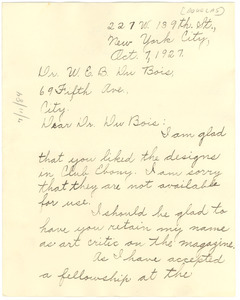 [DOUGLAS]
227 W. 139th St.,
New York City,
Oct. 7, 1927.
Dr. W. E. B. Du Bois,
69 Fifth Ave.
City
Dear Dr. Du Bois:
I am glad
that you liked the designs
in Club Ebony. I am sorry
that they are not available
for use.
I should be glad to
have you retain my name
as art critic on the magazine.
As I have accepted
a fellowship at the